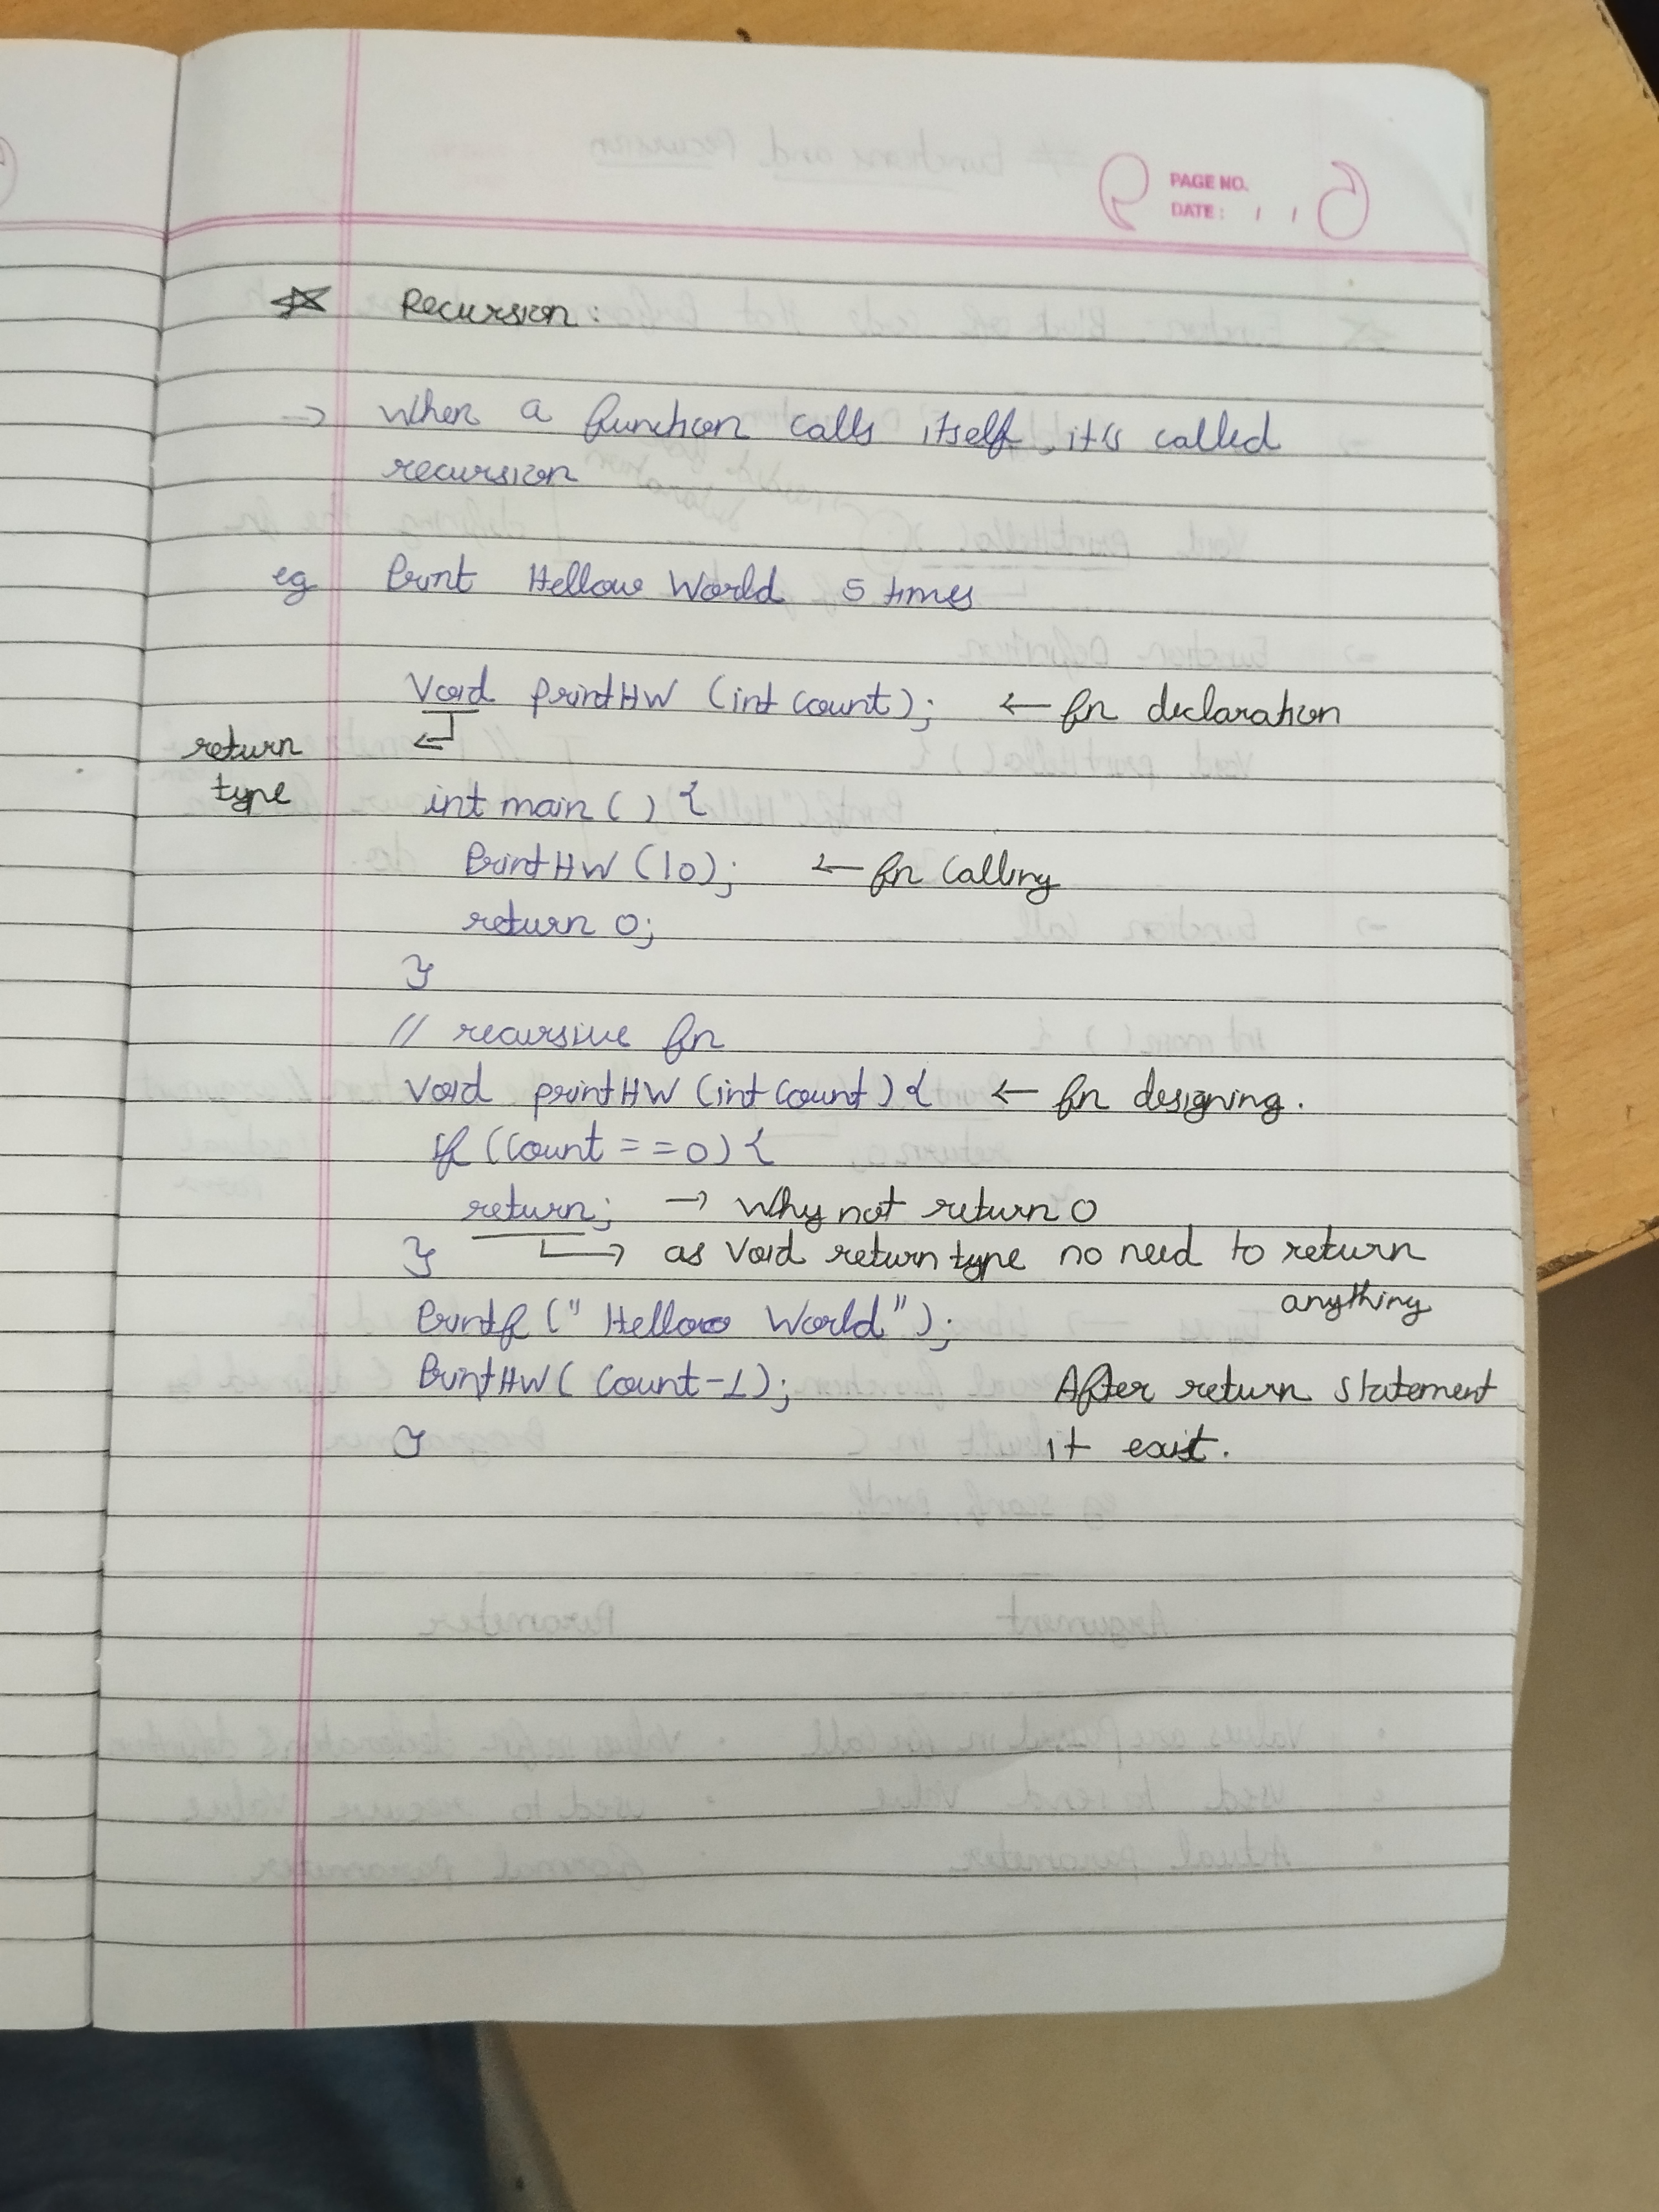 PAGE NO.
DATE: / /
☆ Recursion:
→ When a function calls itself, it's called
recursion
eg Print Hellow World 5 times
Void printHW (int count); ← fn declaration
return
type
int main ( ) {
PrintHW (10); ← fn Calling
return 0;
}
// recursive fn
Void printHW (int count) { ← fn designing.
if (count == 0) {
return; → Why not return 0
} → as Void return type no need to return
anything
Printf (" Hellow World");
PrintHW( Count-1); After return statement
} it exist.